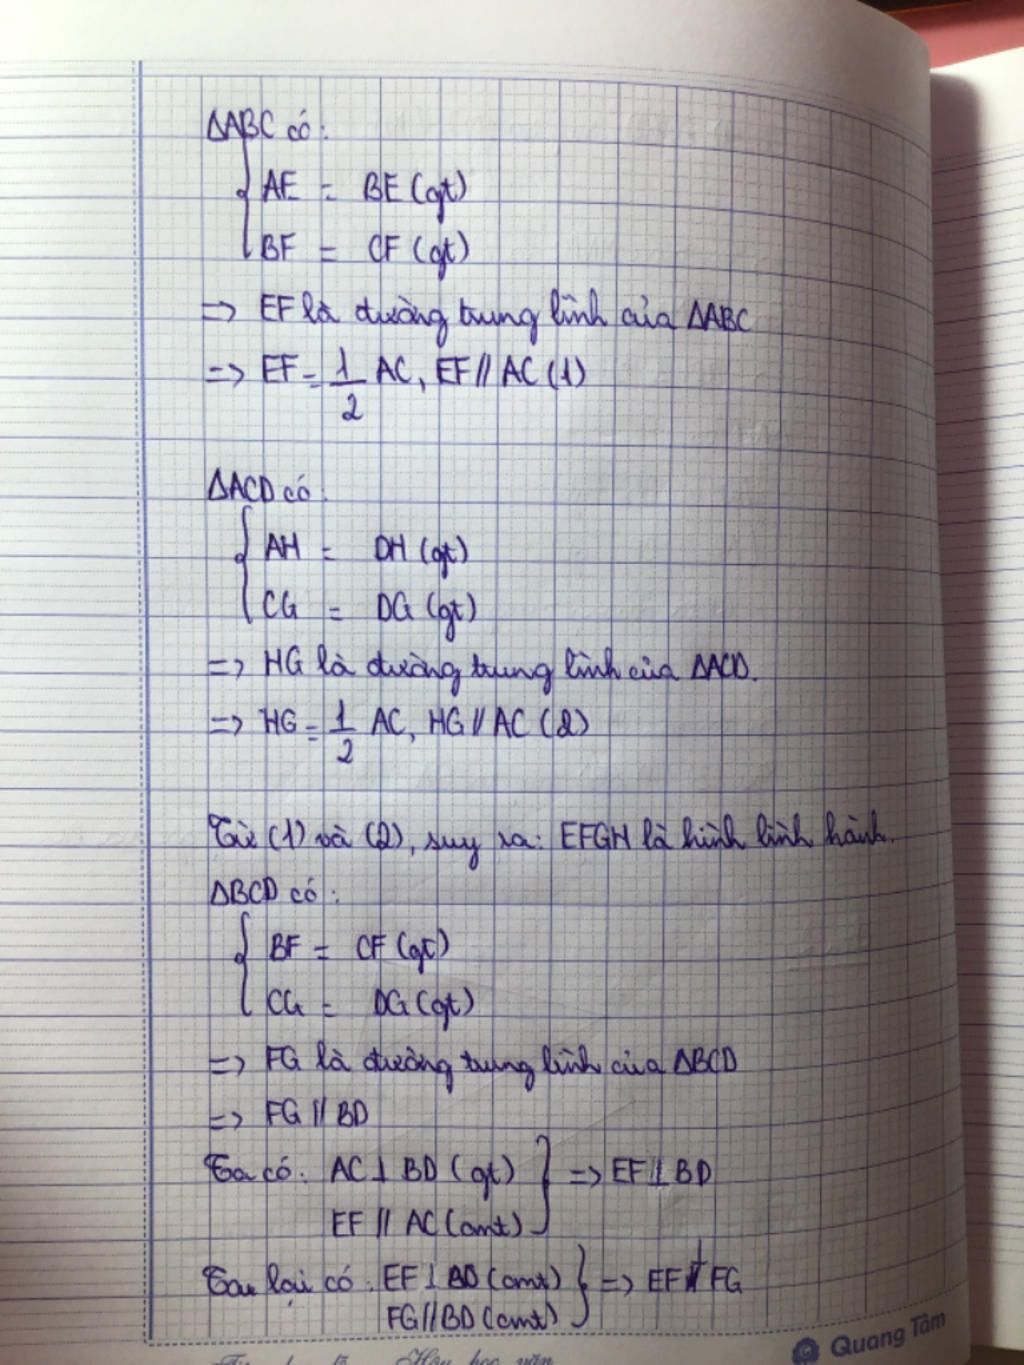 ΔABC có:
AE = BE (gt)
BF = CF (gt)
=> EF là đường trung bình của ΔABC
=> EF = 1/2 AC, EF // AC (1)
ΔACD có
AH = DH (gt)
CG = DG (gt)
=> HG là đường trung bình của ΔACD.
=> HG = 1/2 AC, HG // AC (2)
Từ (1) và (2), suy ra: EFGH là hình bình hành.
ΔBCD có:
BF = CF (gt)
CG = DG (gt)
=> FG là đường trung bình của ΔBCD
=> FG // BD
Ta có: AC ⊥ BD (gt) } => EF ⊥ BD
EF // AC (cmt)
Ta lại có: EF ⊥ BD (cmt) } => EF ⊥ FG
FG // BD (cmt)
Quang Tâm